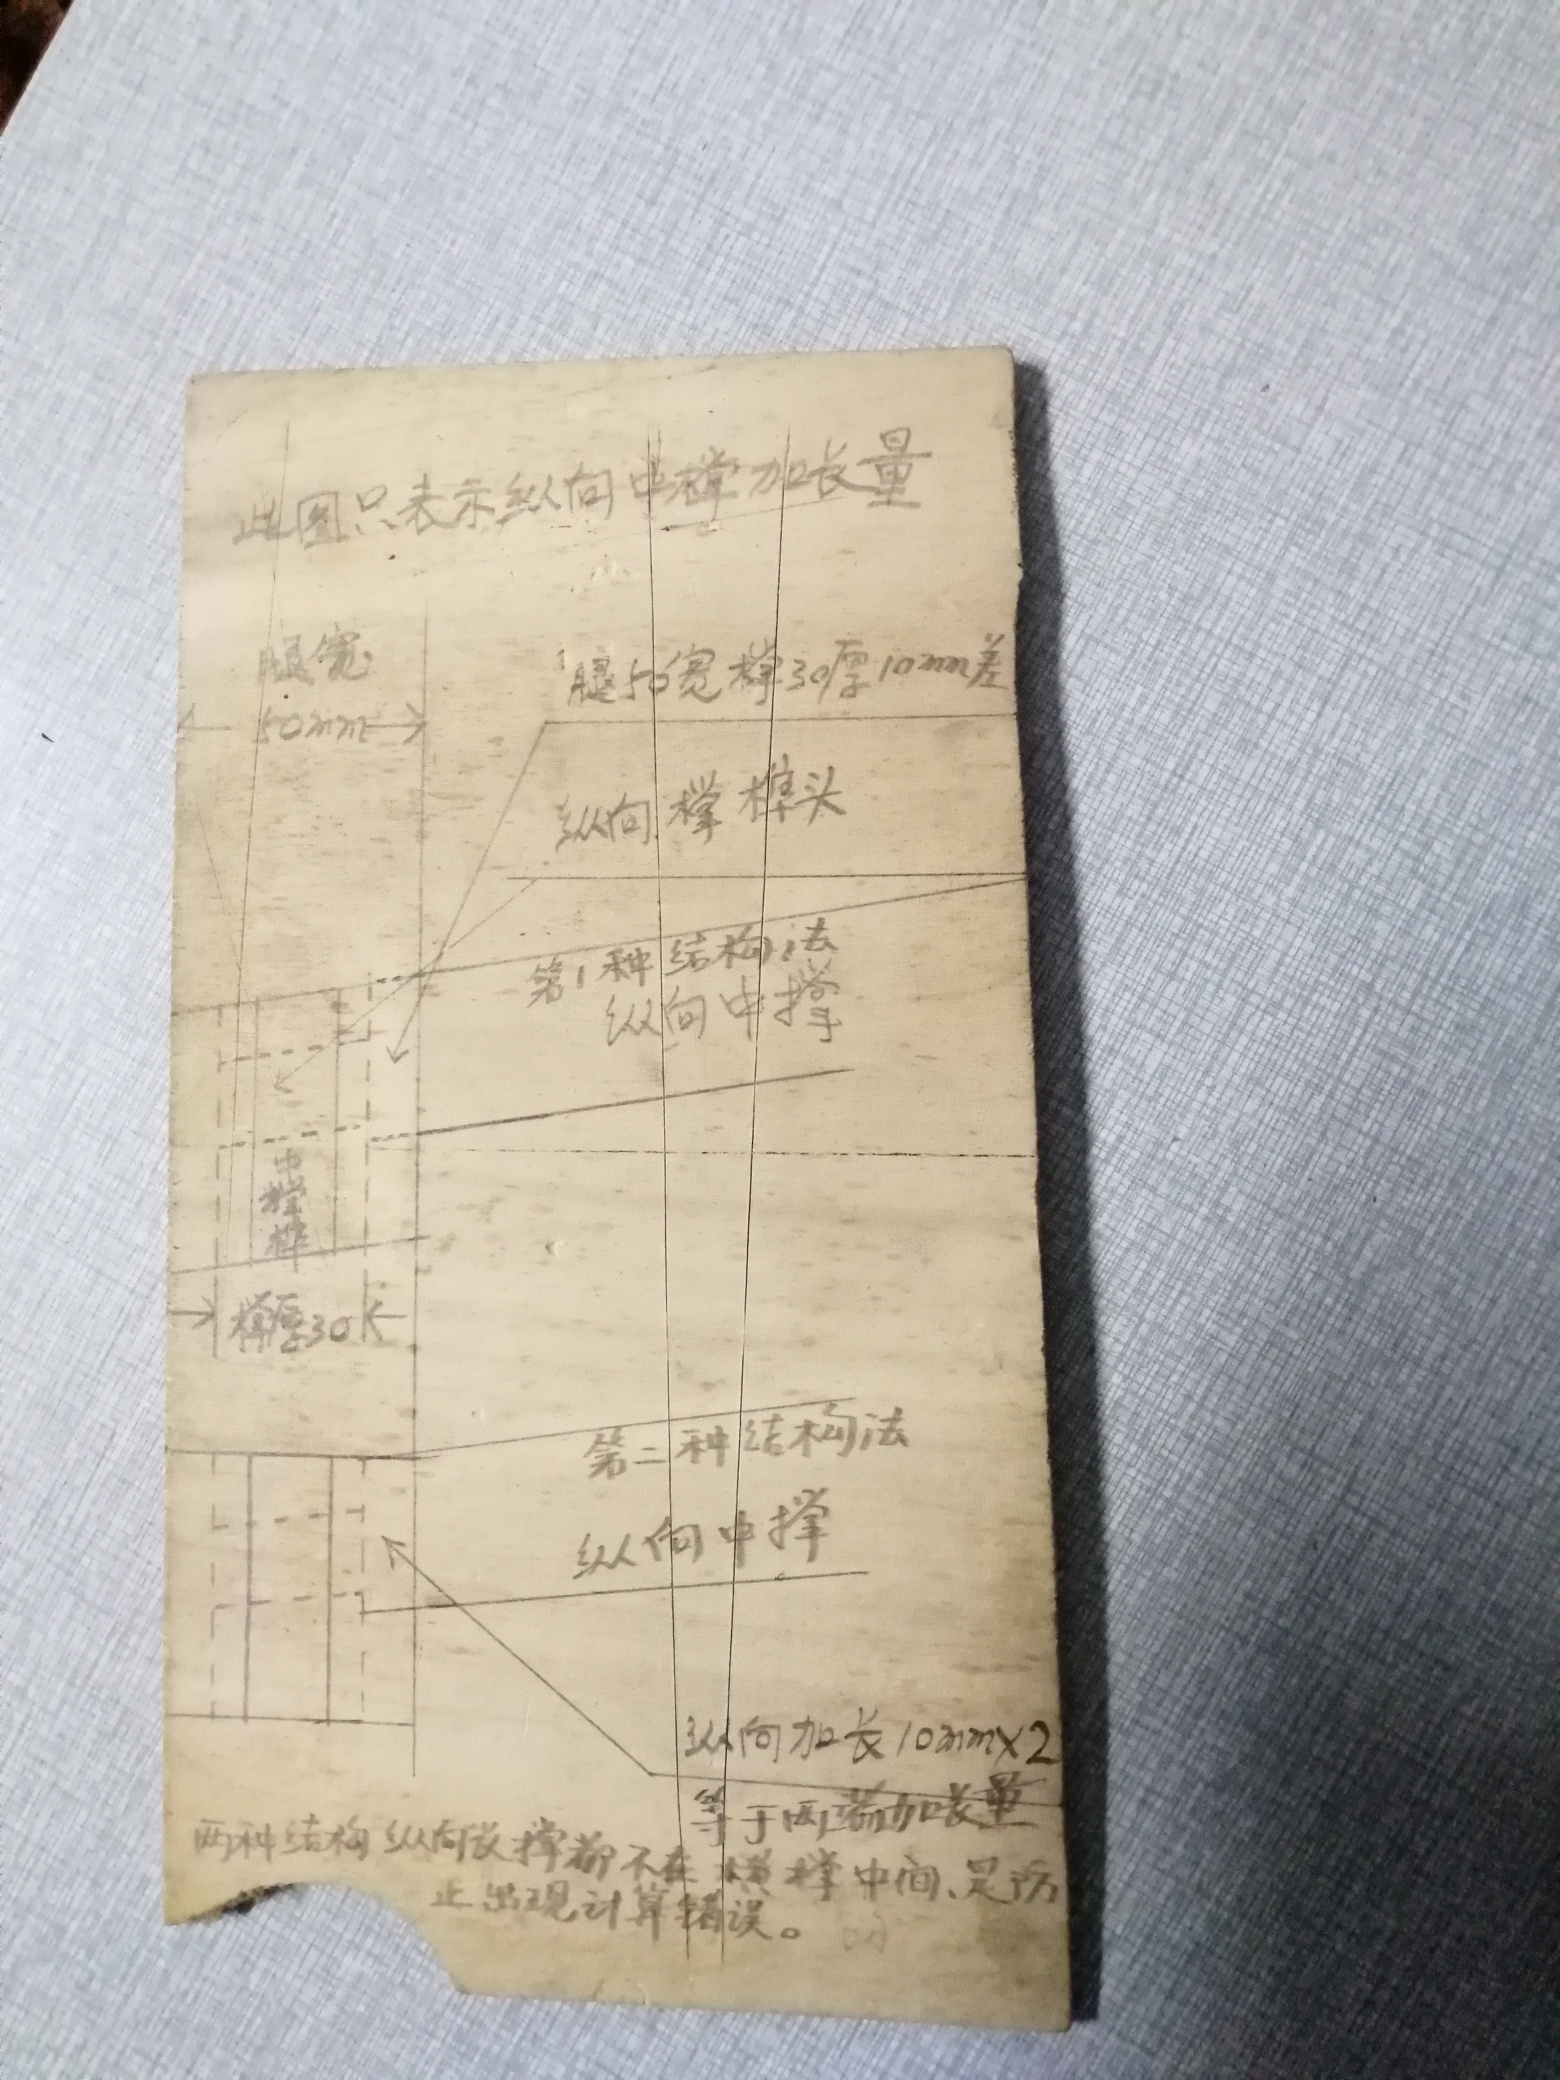 此图只表示纵向中撑加长量
腿宽
50mm
腿50宽撑30厚10mm差
纵向撑榫头
第1种结构法
纵向中撑
中撑榫
撑厚30
第二种结构法
纵向中撑
纵向加长10mm×2
等于两端加长量
两种结构纵向长撑都不在横撑中间、是防
止出现计算错误。